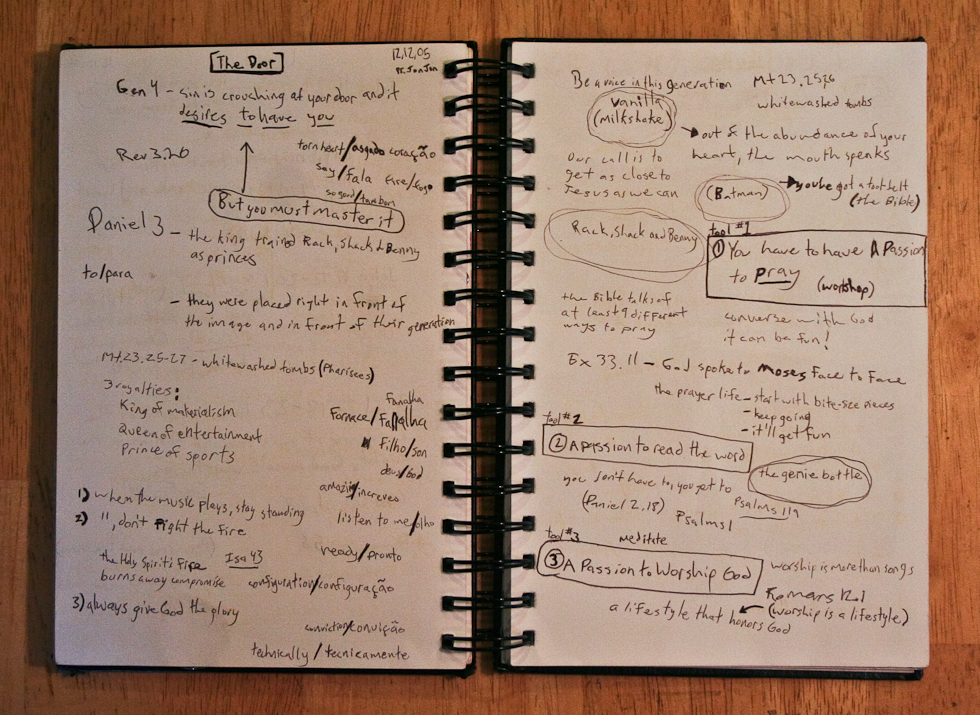 The Door
12,12,05
Pr. JonJon
Gen 4 - sin is crouching at your door and it
desires to have you
Rev 3.20
torn heart/rasgado coração
say/fala fire/fogo
so good/tambon
But you must Master it
Daniel 3 - the king trained Rack, Shack & Benny
as princes
to/para
- they were placed right in front of
the image and in front of their generation
Mt.23.25-27 - whitewashed tombs (Pharisees)
3 royalties:
King of materialism
Queen of entertainment
Prince of sports
Fanalha
Fornace/Fanalha
Filho/son
deus/God
amazing/increveo
1) when the music plays, stay standing
2) ", don't fight the fire
listen to me/olho
the Holy Spirit's Fire Isa 43
burns away compromise
ready/pronto
configuration/configuração
3) always give God the glory
conviction/convição
technically/tecnicamente
Be a voice in this generation
Mt 23.25,26
whitewashed tombs
vanilla
(milkshake)
out of the abundance of your
heart, the mouth speaks
Our call is to
get as close to
Jesus as we can
(Batman)
you've got a tool belt
(the Bible)
Rack, Shack and Benny
tool #1
① You have to have A Passion
to pray (worship)
the Bible talks of
at least 9 different
ways to pray
converse with God
it can be fun!
Ex 33.11 - God spoke to Moses Face to Face
the prayer life - start with bite-size pieces
- keep going
- it'll get fun
tool #2
② A passion to read the word
the genie bottle
you don't have to, you get to
(Daniel 2, 18)
Psalms 119
Psalms 1
meditate
tool #3
③ A Passion to Worship God
worship is more than songs
Romans 12.1
(worship is a lifestyle)
a lifestyle that honors God